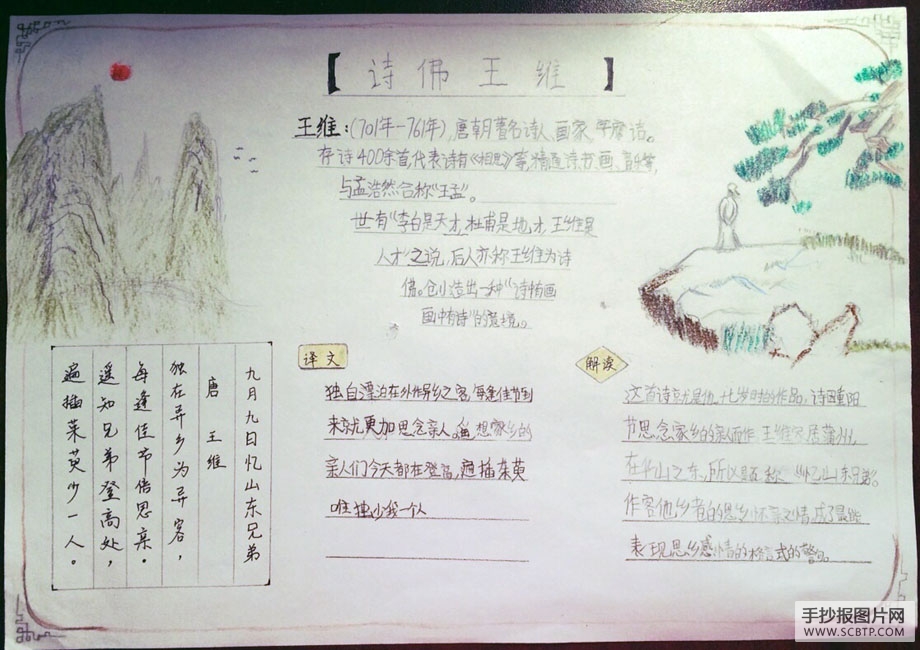 【诗佛王维】
王维：(701年－761年)，唐朝著名诗人、画家，字摩诘。
存诗400余首，代表诗有《相思》等，精通诗书画、音乐等，
与孟浩然合称“王孟”。
世有“李白是天才，杜甫是地才，王维是
人才”之说，后人亦称王维为诗
佛。创造出一种“诗中有画
画中有诗”的意境。
九月九日忆山东兄弟
唐 王维
独在异乡为异客，
每逢佳节倍思亲。
遥知兄弟登高处，
遍插茱萸少一人。
译文
独自漂泊在外作异乡之客，每逢佳节到
来就更加思念亲人。想家乡的
亲人们今天都在登高，遍插茱萸
唯独少我一人
解读
这首诗是他十七岁时的作品，诗因重阳
节思念家乡的亲人而作，王维家居蒲州，
在华山之东，所以题称《忆山东兄弟》。
作客他乡者的思乡怀亲之情，成了最能
表现思乡感情的格言式的警句。
手抄报图片网
WWW.SCBTP.COM